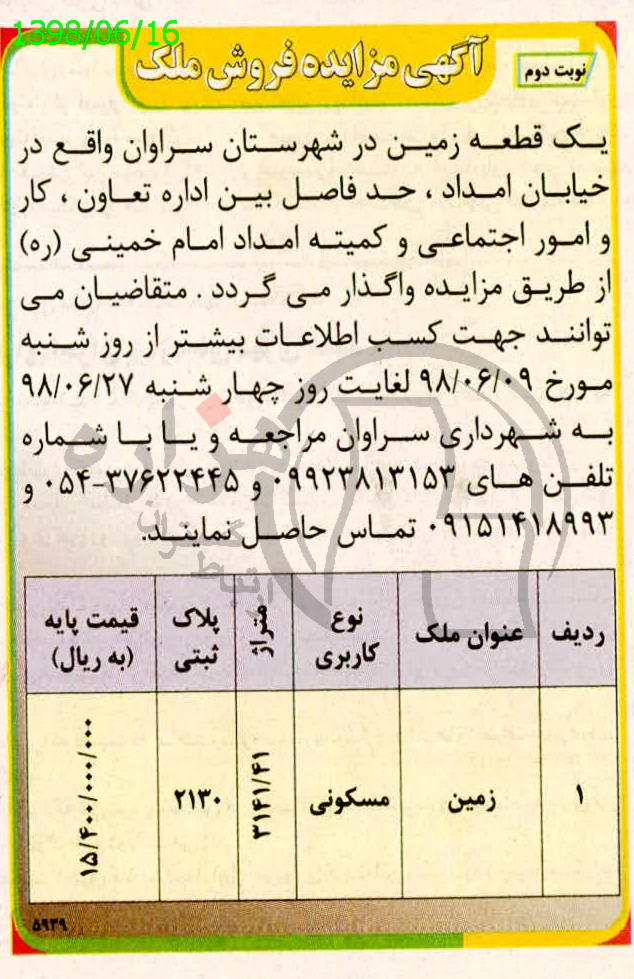 1398/06/16
نوبت دوم
آگهی مزایده فروش ملک
یک قطعه زمین در شهرستان سراوان واقع در
خیابان امداد ، حد فاصل بین اداره تعاون ، کار
و امور اجتماعی و کمیته امداد امام خمینی (ره)
از طریق مزایده واگذار می گردد . متقاضیان می
توانند جهت کسب اطلاعات بیشتر از روز شنبه
مورخ ۹۸/۰۶/۰۹ لغایت روز چهار شنبه ۹۸/۰۶/۲۷
به شهرداری سراوان مراجعه و یا با شماره
تلفن های ۰۹۹۲۳۸۱۳۱۵۳ و ۳۷۶۲۲۴۴۵-۰۵۴ و
۰۹۱۵۱۴۱۸۹۹۳ تماس حاصل نمایند.
ردیف عنوان ملک نوع کاربری متراژ پلاک ثبتی قیمت پایه (به ریال)
۱ زمین مسکونی ۳۱۴۱/۴۱ ۲۱۳۰ ۱۵/۴۰۰/۰۰۰/۰۰۰
۵۹۳۹
هزاره